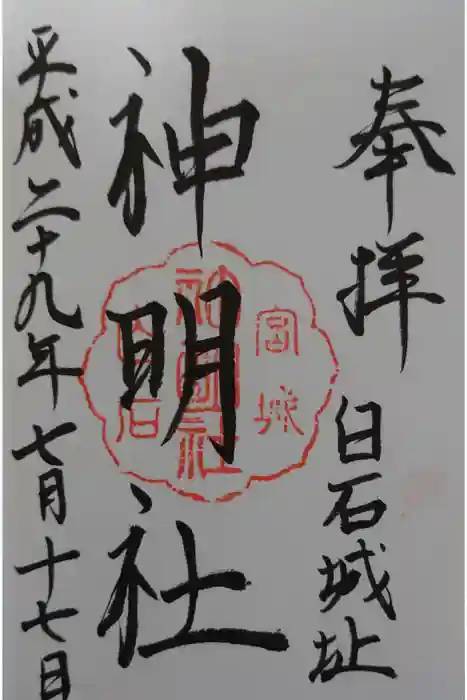 奉拝
白石城址
神明社
宮城
神明社
白石
平成二十九年七月十七日